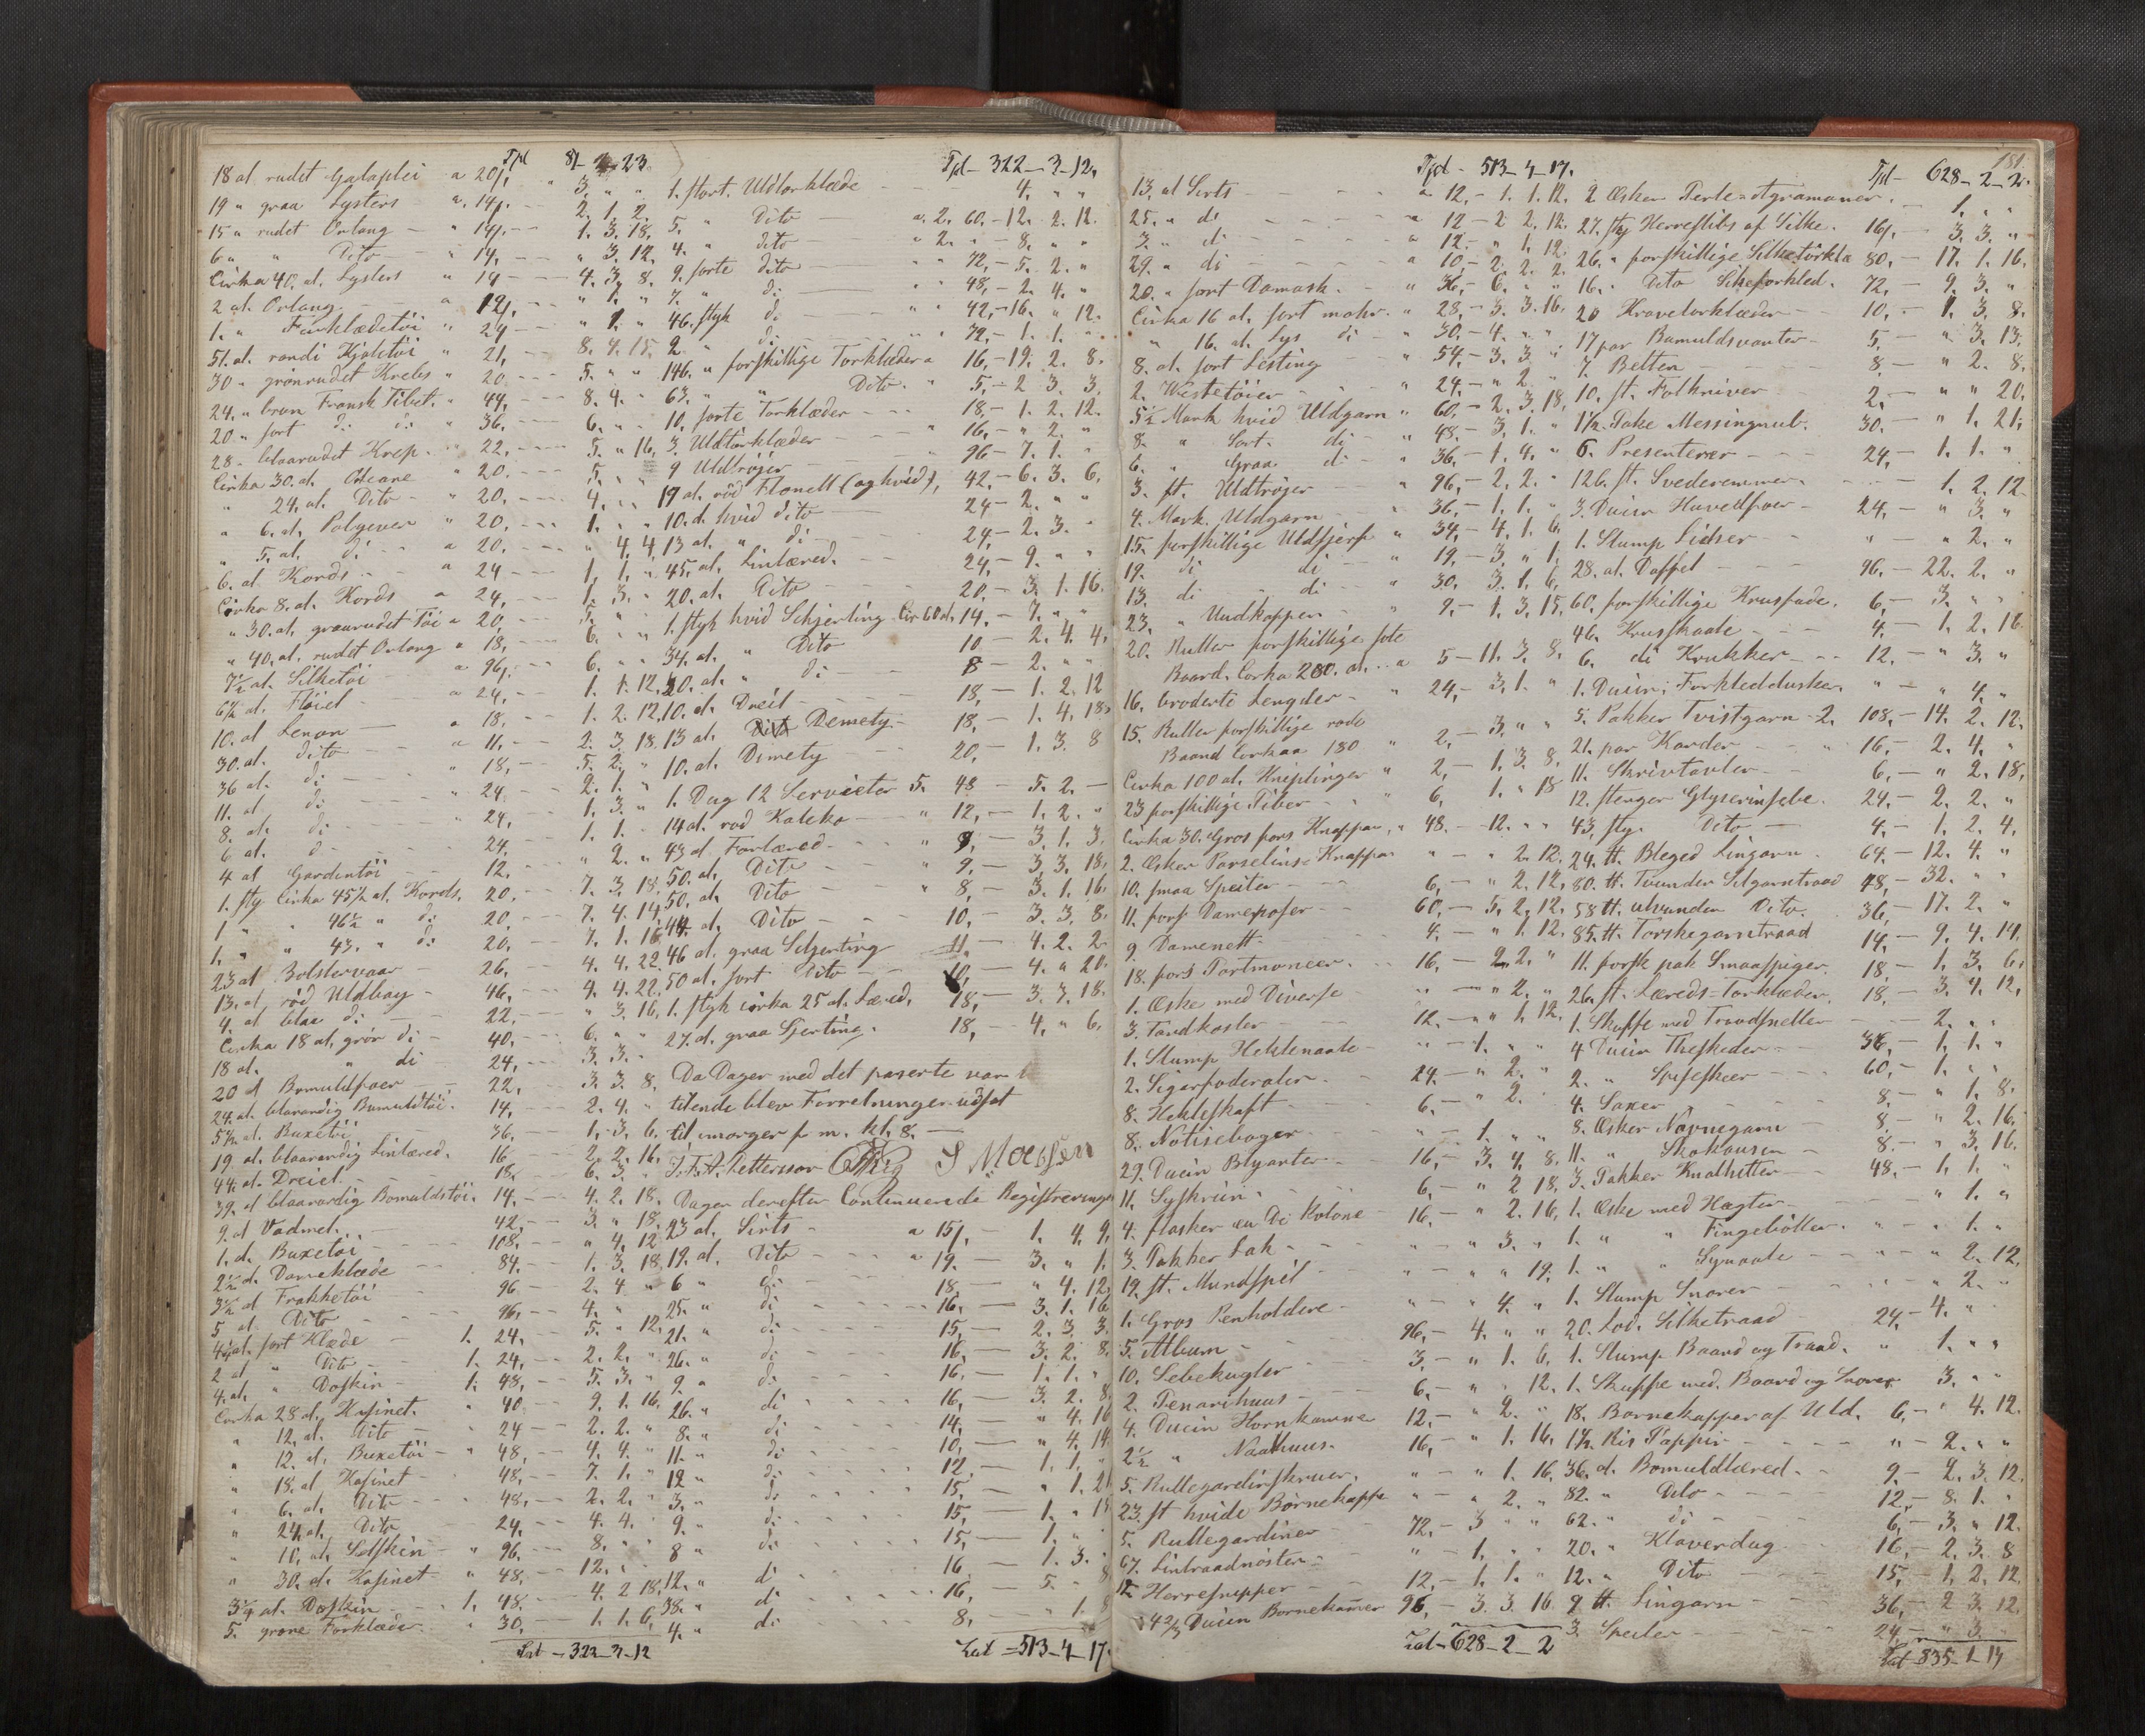 Tpd 81 - 2 - 23
18 al rudet Galaplei a 20/, " 3. " "
19 " graa Lysters a. 14/. -- 2. 1. 2.
15 " rudet Orlang - " 14/. -- 1. 3. 18.
6 " " Dito - " 14, -- " 3. 12.
Cirka 40. al. Lysters " 14 --- 4. 3. 8.
2 al. Orlang - - a 12/, -- " 1. "
1. " Forklædetöi " 24 --- " 1. "
51. al. randi Kjoletöi " 21, --- 8. 4. 15.
30 " grönrudet Kreb " 20 --- 5. " "
24. " brun Fransk Tibet. " 44, --- 8. 4. "
20 " sort di di " 36, --- 6. " "
28 - blaarudet Krep. - " 22, --- 5. " 16.
Cirka 30. al Orleans " 20. --- 5. " "
" 24. al. Dito - " 20, ---- 4. " "
" 6. al. Polgever " 20, --- 1. " "
" 5. al. di - - a 20. --- " 4. 4.
6. al. Kords - - a 24 --- 1. 1. "
Cirka 8. al. Kords a 24, --- 1. 3. "
" 30. al. graurudet Töi a 20, --- 5. " "
" 40. al. rudet Orlang a 18, --- 6. " "
7½ al. Silketöi - a 96, --- 6. " "
6½ al. Flöiel - a 24, -- 1. 1. 12.
10. al Lenon - a 18, -- 1. 2. 12.
30. al. dito - a 11, -- 2. 3. 18.
36 al. di - " 18, -- 5. 2. "
11. al di - " 24. -- 2. 1. "
8. al. di - 24, -- 1. 3. "
6 al. d - 24, -- 1. 1. "
4 al Gardintöi - 12. " 2. "
1. sty Cirka 45½ al. Kords. 20. 7. 3. 18.
1 " " 46½ " di 20. 7. 4. 14.
1. " " 43. " di 20. --- 7. 1. 16.
23 al Bolstervaar - 26, --- 4. 4. 22.
13. al. röd Uldbay - 46, --- 4. 4. 22.
4. al blaa di - 22, --- " 3. 16.
Cirka 18 al. grön di - 40, --- 6. " "
18 al. " di 24, --- 3. 3. "
20 al Bomuldsfoer - 22, 3. 3. 8.
24. al. blaarandig Bumuldtöi. 14, --- 2. 4. "
5½ al. Buxetöi 36, --- 1. 3. 6.
19. al. blaarandig Linlæred. 16 --- 2. 2. 16.
44. al. Dreiel. - 18, -- 6. 3. "
39. al blaarandig Bomuldstöi. 14, --- 4. 2. 18.
9. al Vadmel. - - 42, --- 3. " 18.
1. al. Buxetöi - - 108, -- " 4. 12
2½ al. Dameklæde 84, -- 1. 3. 18.
3½ al Frakketöi 96 -- 2. 4 "
5 al. Dito - - 96, -- 4. " "
4¼ al. sort Klæde - 1. 24, -- 5. " 12.
2 al " Dito - 1. 24, -- 2. 2. "
4. al. " Doskin - 1. 48, -- 5. 3. "
Cirka 28 al. Kasinet. " 40, --- 9. 1. 16.
" 12. al. Dito - " 24 -- 2. 2. "
" 12. al. Buxetöi - " 48, -- 4. 4. "
" 18. al Kasinet - " 48, -- 7. 1. "
" 6. al. Dito - " 48, -- 2. 2. "
" 24. al. Dito " 24, -- 4. 4. "
" 10. al. Selskin - " 96, -- 8. " "
" 30. al. Kasinet - " 48, -- 12. " "
3¼ al. Doskin - 1. 48, -- 4. 2 18.
5. grove Forklæder. " 30, -- 1. 1. 6.
Lat - 322 - 3 - 12
Tpd - 322 - 3 - 12.
1. stort Uldtorklæde - - 4. " "
5. " Dito - a. 2. 60. - 12. 2. 12.
4. " dito " 2. " - 8. " "
9. sorte dito " " 72, - 5. 2. "
7. " di - " " 48, - 2. 4. "
46. styk di " " 42, - 16. " 12.
2. " di 72, - 1. 1. "
146. " forskillige Torklæder a 16, - 19. 2. 8.
63. " " Dito. " 5, - 2 3. 3.
10. sorte Torklæder - - 18, - 1. 2. 12.
3. Uldtörklæder - - " 16, - " 2. "
9 Uldtröjer - " 96 - 7. 1. "
19 al. röd Flonell (og hvid), 42, - 6. 3. 6.
10. al. hvid dito - 24 - 2. " "
13 al. " di - 24, - 2. 3. "
45. al. Linlæred. - 24, - 9. " "
20. al. Dito - 20, - 3. 1. 16.
1. styk hvid Schjerting Cir 60 al. 14, - 7. " "
34. al. " Dito 10 - 2. 4. 4.
20. al. " di - 8 - 2. " "
10. al. Dreil - 18, - 1. 2. 12
13 al. Demety - 18, - 1. 4. 18.
10. al. Dimety - 20, - 1. 3. 8
1. Dug 12 Servietter 5. 48 - 5. 2. -
14 al. rød Kaleko - " 12, - 1. 2. "
43 al. Forlæred - " 9, - 3. 1. 3.
50. al. Dito - " 9, - 3. 3. 18.
50. al. Dito - " 8, - 3. 1. 16.
44. al. Dito - 10, - 3. 3. 8.
46 al. graa Schjerting 11, - 4. 2. 2
50 al. sort dito - 10, - 4. " 20.
1. styk cirka 25 al. Læred. 18, - 3. 3. 18.
27. al. graa Sjerting. 18, - 4. " 6.
Da Dagen med det paserte var
tilende blev Forretningen udsat
til imorgen f m. kl. 8. -
J. F. A. Petterson S Moelsen
Dagen derefter Continuerede Registreringen
23 al. Sirts - a 15/, - 1. 4. 9.
19. al. Dito - - a 19. - 3. " 1.
6 " di 18, - " 4. 12
25. " di - 16, - 3. 1. 16
21. " di - 15, - 2. 3. 3.
26. " di - 16, - 3. 2. 8.
9. " di - 16, - 1. 1. "
26. " di - 16, - 3. 2. 8
8. " di - 14, - " 4. 16
11. " di 10, - " 4. 14
12 " di 12, - 1. 1. "
3. " di 15, - " 1. 21
9. " di 15, - 1. " 15
8 " di 15, - 1. " "
12. " di 16 - 1. 3. "
38. " di 16, - 5. " 8
4. " di 8, - " 1. 8
Lat - 513 - 4 - 17.
Tpd - 513 - 4 - 17.
13. al Serts - - a 12, - 1. 1. 12.
25. " di - - a 12 - 2 2. 12.
3. " di - - a 12. - " 1. 12.
29. " di - - a 10, - 2. 2. 2.
20. " sort Damask. - " 36, - 6. " "
Cirka 16 al. sort mohr. " 28, - 3. 3. 16.
" 16. al. Lys di - " 30, - 4. " "
8. al. sort Lesting " 54, - 3. 3 "
2. Westetöier - " 24, - " 2 "
5½ Mark hvid Uldgarn " 60, - 2. 3. 18.
8. " Sort. di - " 48, - 3. 1. "
6. " Graa di - " 36, - 1. 4. "
3. st. Uldtröger - " 96, - 2. 2. "
4. Mark. Uldgarn - " 36, - 1. 1. "
15. forskillige Uldsjerf " 34, - 4. 1. 6.
19. di di - " 19, - 3. " 1.
13. di - di - " 30. 3. 1. 6.
23. " Uudkopper - " 9, - 1. 3. 15.
20. Ruller forskillige sote
Baand. Cirka 280. al. a 5 - 11. 3. 8.
16. broderte Lengder - " 24, - 3. 1. "
15. Ruller forskillige røde
Baand Cirkaa 180 " 2, - 3. " "
Cirka 100 al. Kniplinger " 2, - 1. 3. 8.
23 forskillige Piber - - " 6, 1. " 18
Cirka 30. Gros fors Knapper, " 48. - 12. " "
2. Æsker Porselins Knapper " - " 2. 12.
10. smaa Speiler - - 6, - " 2. 12.
11. fors Dameposer - - 60, - 5. 2. 12.
9. Damenett - - 4. - " 1. 12.
18. fors Portmoneer. - 16, - 2. 2. "
1. Æske med Diverse " - " 2. "
3. Tandkoster - - 12. - " 1. 12.
1. Stump Heklenaale - " - 1. " "
2. Sigarfoderaler - 24. - " 2. "
8. Hekleskaft - 6, - " 2. "
8. Notisebøger - " - 1. " "
29. Ducin Blyanter - 16, - 3. 4. 8.
11. Syskrin - 6, - " 2 18.
4. flasker au De Kolone - 16, - " 2. 16.
3. Pakker Lak - " - " 3. "
19. st. Mundspil - " - " " 19.
1. Gros Penholdere - " - " 4. "
5. Album - 96, - 4. " "
10. Sebekugler - 3. - " 1. 6.
2. Penarihuus - 6, - " " 12.
4. Ducin Hornkamme 12, - " 2. "
2½ " Naalhuus. 16, - " 1. 16.
5. Rullegardinskruer. " - " 1. 16.
23. st hvide Börnekapper " - " 2. "
5. Rullegardiner - 72, - 3 " "
67. Lintraadnöster - " - 1. " "
12 Herreslipper - - 12, - 1. 1. "
4⅔ Ducin Bornekamer 96, - 3. 3. 16
Lat - 628 - 2 - 2
181.
Tpd - 628 - 2 - 2.
2 Æsker Perle-Agramaner. - 1. " "
27. sty Herreslibs af Silke. 16/. - 3. 3. "
26. " forskillige Silketörkla 80, - 17. 1. 16.
16. " Dito Silkeforkled. 72, - 9. 3. "
20 Kravetorklæder - 10, - 1. 3. 8.
17 par Bumuldsvanter - 5, - " 3. 13.
7. Belter - 8, - " 2. 8.
10. st. Folkniver 2, - " " 20.
1½ Pake Messingnub. 30. - " 1. 21.
6. Presenterer - - 24, - 1. 1. "
126. st. Svederemmer - 1. 2. 12
3. Ducin Huvedfoer - 24, - " 3. "
1. Stump Lidser - " - " 2. "
28. al. Doffel - - 96. - 22. 2. "
60. forskillige Krusfade. 6, - 3. " "
46. Krusskaale - 4. - 1. 2. 16
6. di Krukker - - 12, - " 3. "
1. Ducin; Forkleddusker. " - " 4. "
5. Pakker Tvistgarn 2. 108, - 14. 2. 12.
21. par Karder - - " 16, - 2. 4. "
11. Skrivtavler - - 6, - " 2. 18.
12. stenger Glyserinsebe. 24, - 2. 2. "
43. sty. Dito - 4. - 1. 2. 4.
24. tt. Bleged Lingarn - 64, - 12. 4. "
80. tt. Tvunden Selgarntraad 48, - 32. " "
58 tt. utvunden Dito. 36, - 17. 2. "
85. tt. Torskegarntraad 14, - 9. 4. 14.
11. forsk pak Smaaspiger. 18, - 1. 3. 6.
26. st. Læreds-Torklæder. 18, - 3. 4. 12.
1. Skuffe med Traadsneller - 2. " "
4 Ducin Theskeder - - 36, - 1. 1. "
2. " Speseskeer - 60, - 1. " "
4. Saxer - 8, - " 1. 8.
8. Æsker Navnegarn 8 - " 2. 16.
11. " Skokousen 8. - " 3. 16.
3. Pakker Knalhetter - 48, - 1. 1. "
1. Æske med Hægter - " 1. "
1. " " Fingebøller. " - " 1. "
1. " " Synaale - " 2. 12.
1. Stump Snorer - " 2. "
20. Lod. Silketraad - 24, - 4. "
1. Stump Baand og Traad. " 1. " "
1. Skuffe med. Baand og Snorer 3. " "
18. Bornekapper af Uld. 6, - " 4. 12.
1½ Ris Pappir - " - 2. " "
36. al. Bomuldlæred. - 9 - 2. 3. 12.
82. " Dito 12, - 8. 1. "
62. " di 6, - 3. " 12.
20. " Klaverdug 16, - 2. 3. 8
12. " Dito 15, - 1. 2. 12
9 tt. Lingarn 36, - 2 3. 12.
3. Speiler - 24, - " 3. "
Lat 835 - 1 - 14